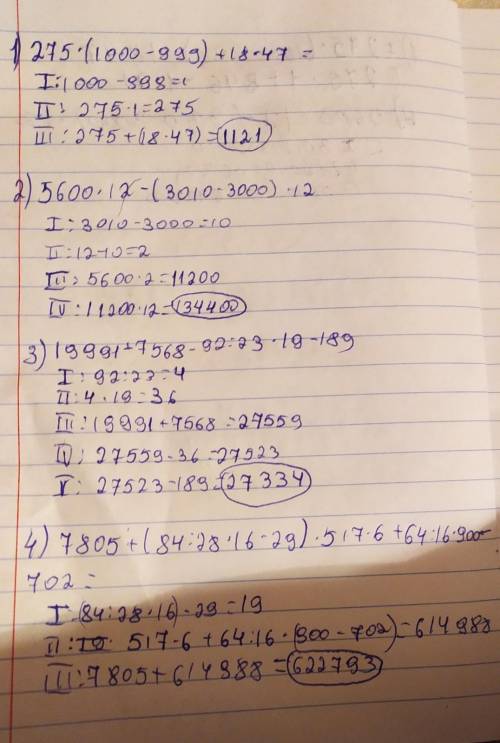 1) 275·(1000-999)+18·47=
I: 1000-999=1
II: 275·1=275
III: 275+(18·47)=1121
2) 5600·12-(3010-3000)·12
I: 3010-3000=10
II: 12-10=2
III: 5600·2=11200
IV: 11200·12=134400
3) 19991+7568-92:23·19-189
I: 92:23=4
II: 4·19=36
III: 19991+7568=27559
IV: 27559-36=27523
V: 27523-189=27334
4) 7805+(84:28·16-29)·517·6+64:16·900-
702=
I: (84:28·16)-29=19
II: 19· 517·6+64:16·(900-702)=614988
III: 7805+614988=622793